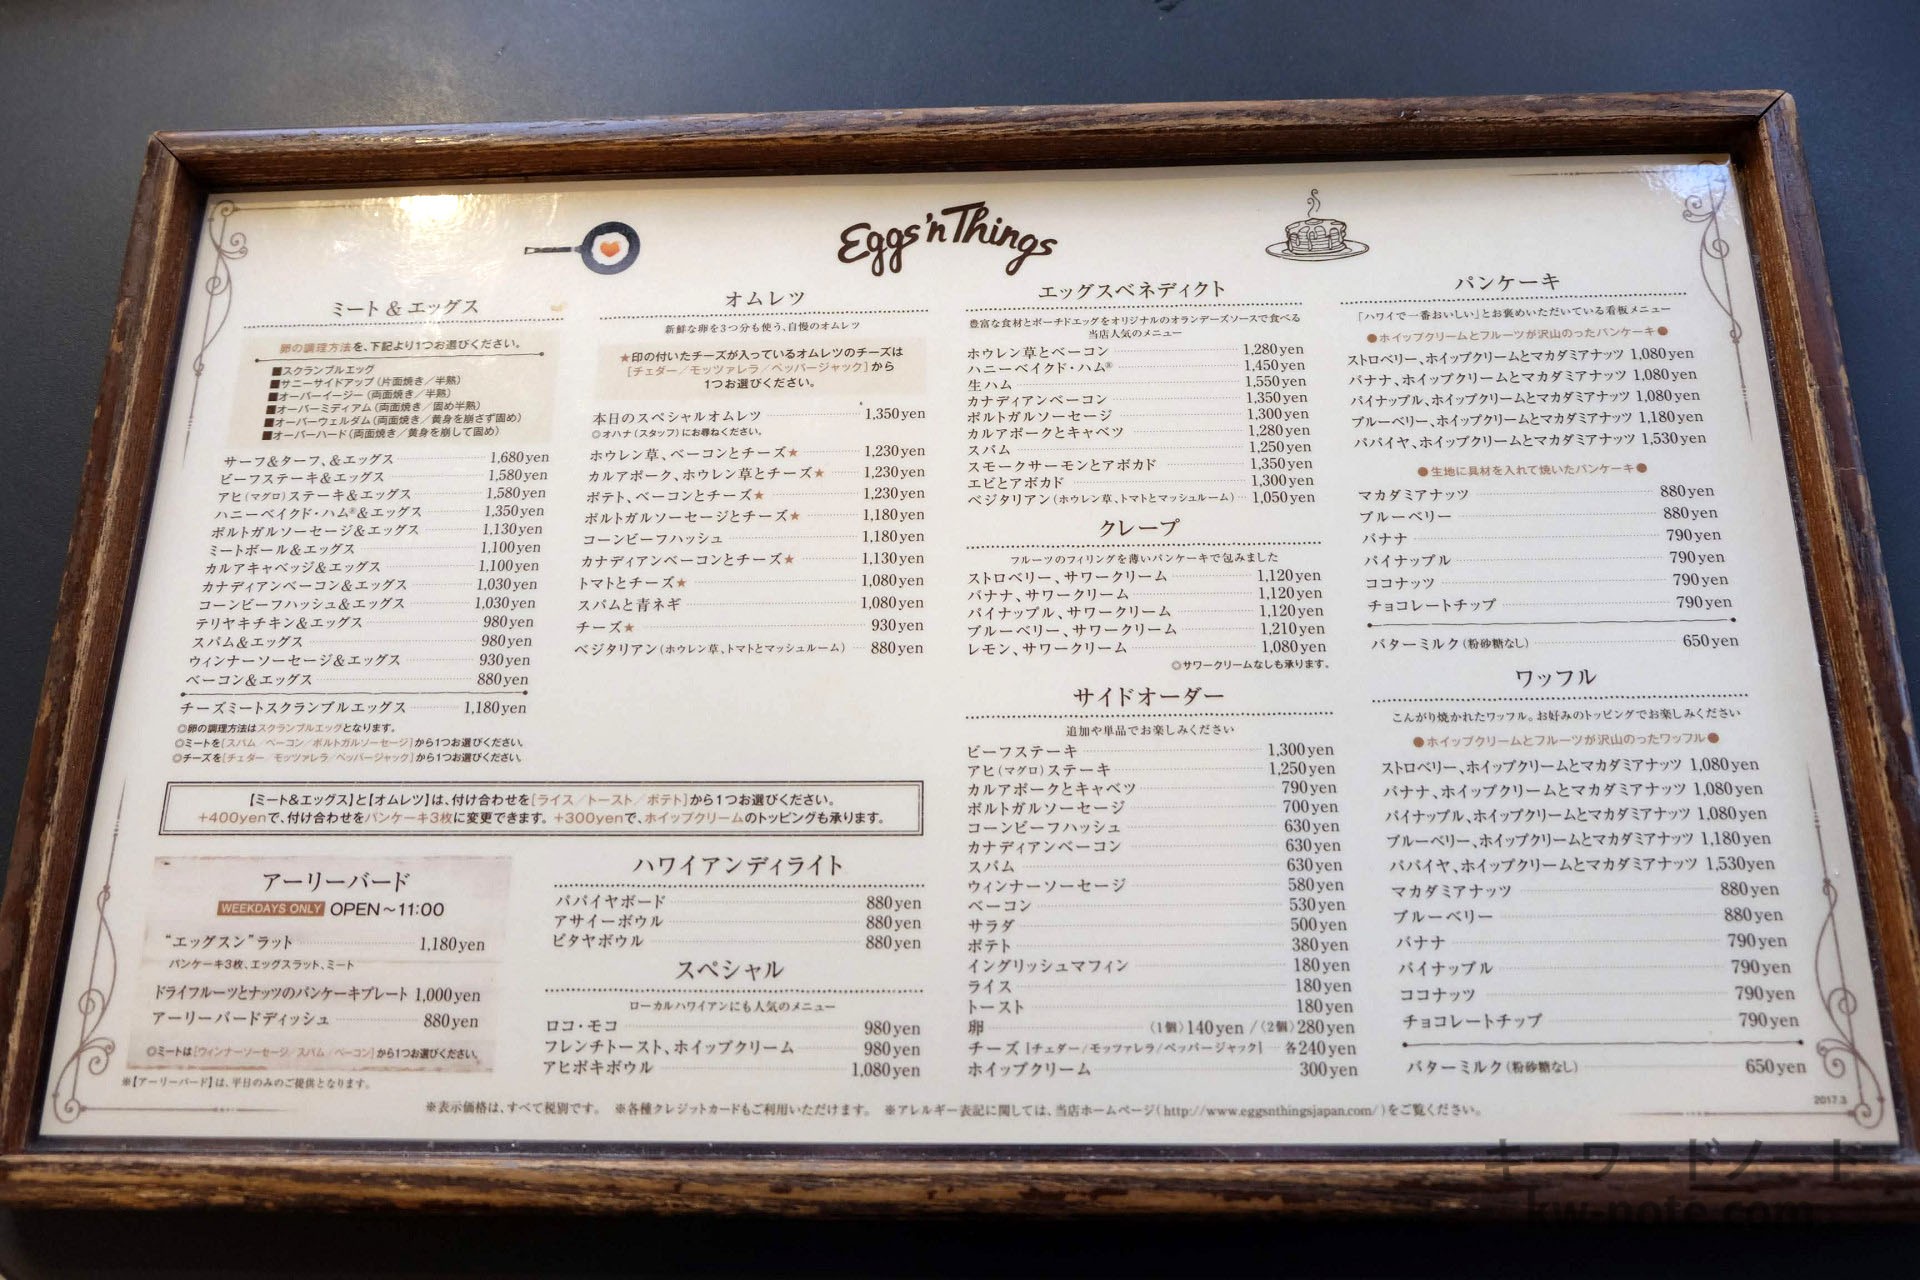 Eggs'n Things
ミート&エッグス
卵の調理方法を、下記より1つお選びください。
■スクランブルエッグ
■サニーサイドアップ(片面焼き/半熟)
■オーバーイージー(両面焼き/半熟)
■オーバーミディアム(両面焼き/固め半熟)
■オーバーウェルダム(両面焼き/黄身を崩さず固め)
■オーバーハード(両面焼き/黄身を崩して固め)
サーフ&ターフ、&エッグス 1,680yen
ビーフステーキ&エッグス 1,580yen
アヒ(マグロ)ステーキ&エッグス 1,580yen
ハニーベイクド・ハム®&エッグス 1,350yen
ポルトガルソーセージ&エッグス 1,130yen
ミートボール&エッグス 1,100yen
カルアキャベッジ&エッグス 1,100yen
カナディアンベーコン&エッグス 1,030yen
コーンビーフハッシュ&エッグス 1,030yen
テリヤキチキン&エッグス 980yen
スパム&エッグス 980yen
ウィンナーソーセージ&エッグス 930yen
ベーコン&エッグス 880yen
チーズミートスクランブルエッグス 1,180yen
◎卵の調理方法はスクランブルエッグとなります。
◎ミートを[スパム/ベーコン/ポルトガルソーセージ]から1つお選びください。
◎チーズを[チェダー/モッツァレラ/ペッパージャック]から1つお選びください。
オムレツ
新鮮な卵を3つ分も使う、自慢のオムレツ
★印の付いたチーズが入っているオムレツのチーズは
[チェダー/モッツァレラ/ペッパージャック]から
1つお選びください。
本日のスペシャルオムレツ 1,350yen
◎オハナ(スタッフ)にお尋ねください。
ホウレン草、ベーコンとチーズ★ 1,230yen
カルアポーク、ホウレン草とチーズ★ 1,230yen
ポテト、ベーコンとチーズ★ 1,230yen
ポルトガルソーセージとチーズ★ 1,180yen
コーンビーフハッシュ 1,180yen
カナディアンベーコンとチーズ★ 1,130yen
トマトとチーズ★ 1,080yen
スパムと青ネギ 1,080yen
チーズ★ 930yen
ベジタリアン(ホウレン草、トマトとマッシュルーム) 880yen
【ミート&エッグス】と【オムレツ】は、付け合わせを[ライス/トースト/ポテト]から1つお選びください。
+400yenで、付け合わせをパンケーキ3枚に変更できます。+300yenで、ホイップクリームのトッピングも承ります。
アーリーバード
WEEKDAYS ONLY OPEN～11:00
“エッグスン”ラット 1,180yen
パンケーキ3枚、エッグスラット、ミート
ドライフルーツとナッツのパンケーキプレート 1,000yen
アーリーバードディッシュ 880yen
◎ミートは[ウィンナーソーセージ/スパム/ベーコン]から1つお選びください。
※【アーリーバード】は、平日のみのご提供となります。
ハワイアンディライト
パパイヤボード 880yen
アサイーボウル 880yen
ピタヤボウル 880yen
スペシャル
ローカルハワイアンにも人気のメニュー
ロコ・モコ 980yen
フレンチトースト、ホイップクリーム 980yen
アヒポキボウル 1,080yen
エッグスベネディクト
豊富な食材とポーチドエッグをオリジナルのオランデーズソースで食べる
当店人気のメニュー
ホウレン草とベーコン 1,280yen
ハニーベイクド・ハム® 1,450yen
生ハム 1,550yen
カナディアンベーコン 1,350yen
ポルトガルソーセージ 1,300yen
カルアポークとキャベツ 1,280yen
スパム 1,250yen
スモークサーモンとアボカド 1,350yen
エビとアボカド 1,300yen
ベジタリアン(ホウレン草、トマトとマッシュルーム) 1,050yen
クレープ
フルーツのフィリングを薄いパンケーキで包みました
ストロベリー、サワークリーム 1,120yen
バナナ、サワークリーム 1,120yen
パイナップル、サワークリーム 1,120yen
ブルーベリー、サワークリーム 1,210yen
レモン、サワークリーム 1,080yen
◎サワークリームなしも承ります。
サイドオーダー
追加や単品でお楽しみください
ビーフステーキ 1,300yen
アヒ(マグロ)ステーキ 1,250yen
カルアポークとキャベツ 790yen
ポルトガルソーセージ 700yen
コーンビーフハッシュ 630yen
カナディアンベーコン 630yen
スパム 630yen
ウィンナーソーセージ 580yen
ベーコン 530yen
サラダ 500yen
ポテト 380yen
イングリッシュマフィン 180yen
ライス 180yen
トースト 180yen
卵 (1個)140yen /(2個)280yen
チーズ[チェダー/モッツァレラ/ペッパージャック] 各240yen
ホイップクリーム 300yen
パンケーキ
「ハワイで一番おいしい」とお褒めいただいている看板メニュー
●ホイップクリームとフルーツが沢山のったパンケーキ●
ストロベリー、ホイップクリームとマカダミアナッツ 1,080yen
バナナ、ホイップクリームとマカダミアナッツ 1,080yen
パイナップル、ホイップクリームとマカダミアナッツ 1,080yen
ブルーベリー、ホイップクリームとマカダミアナッツ 1,180yen
パパイヤ、ホイップクリームとマカダミアナッツ 1,530yen
●生地に具材を入れて焼いたパンケーキ●
マカダミアナッツ 880yen
ブルーベリー 880yen
バナナ 790yen
パイナップル 790yen
ココナッツ 790yen
チョコレートチップ 790yen
バターミルク(粉砂糖なし) 650yen
ワッフル
こんがり焼かれたワッフル。お好みのトッピングでお楽しみください
●ホイップクリームとフルーツが沢山のったワッフル●
ストロベリー、ホイップクリームとマカダミアナッツ 1,080yen
バナナ、ホイップクリームとマカダミアナッツ 1,080yen
パイナップル、ホイップクリームとマカダミアナッツ 1,080yen
ブルーベリー、ホイップクリームとマカダミアナッツ 1,180yen
パパイヤ、ホイップクリームとマカダミアナッツ 1,530yen
マカダミアナッツ 880yen
ブルーベリー 880yen
バナナ 790yen
パイナップル 790yen
ココナッツ 790yen
チョコレートチップ 790yen
バターミルク(粉砂糖なし) 650yen
2017.3
※表示価格は、すべて税別です。 ※各種クレジットカードもご利用いただけます。 ※アレルギー表記に関しては、当店ホームページ(http://www.eggsnthingsjapan.com/)をご覧ください。
キーワードノート
kw-note.com